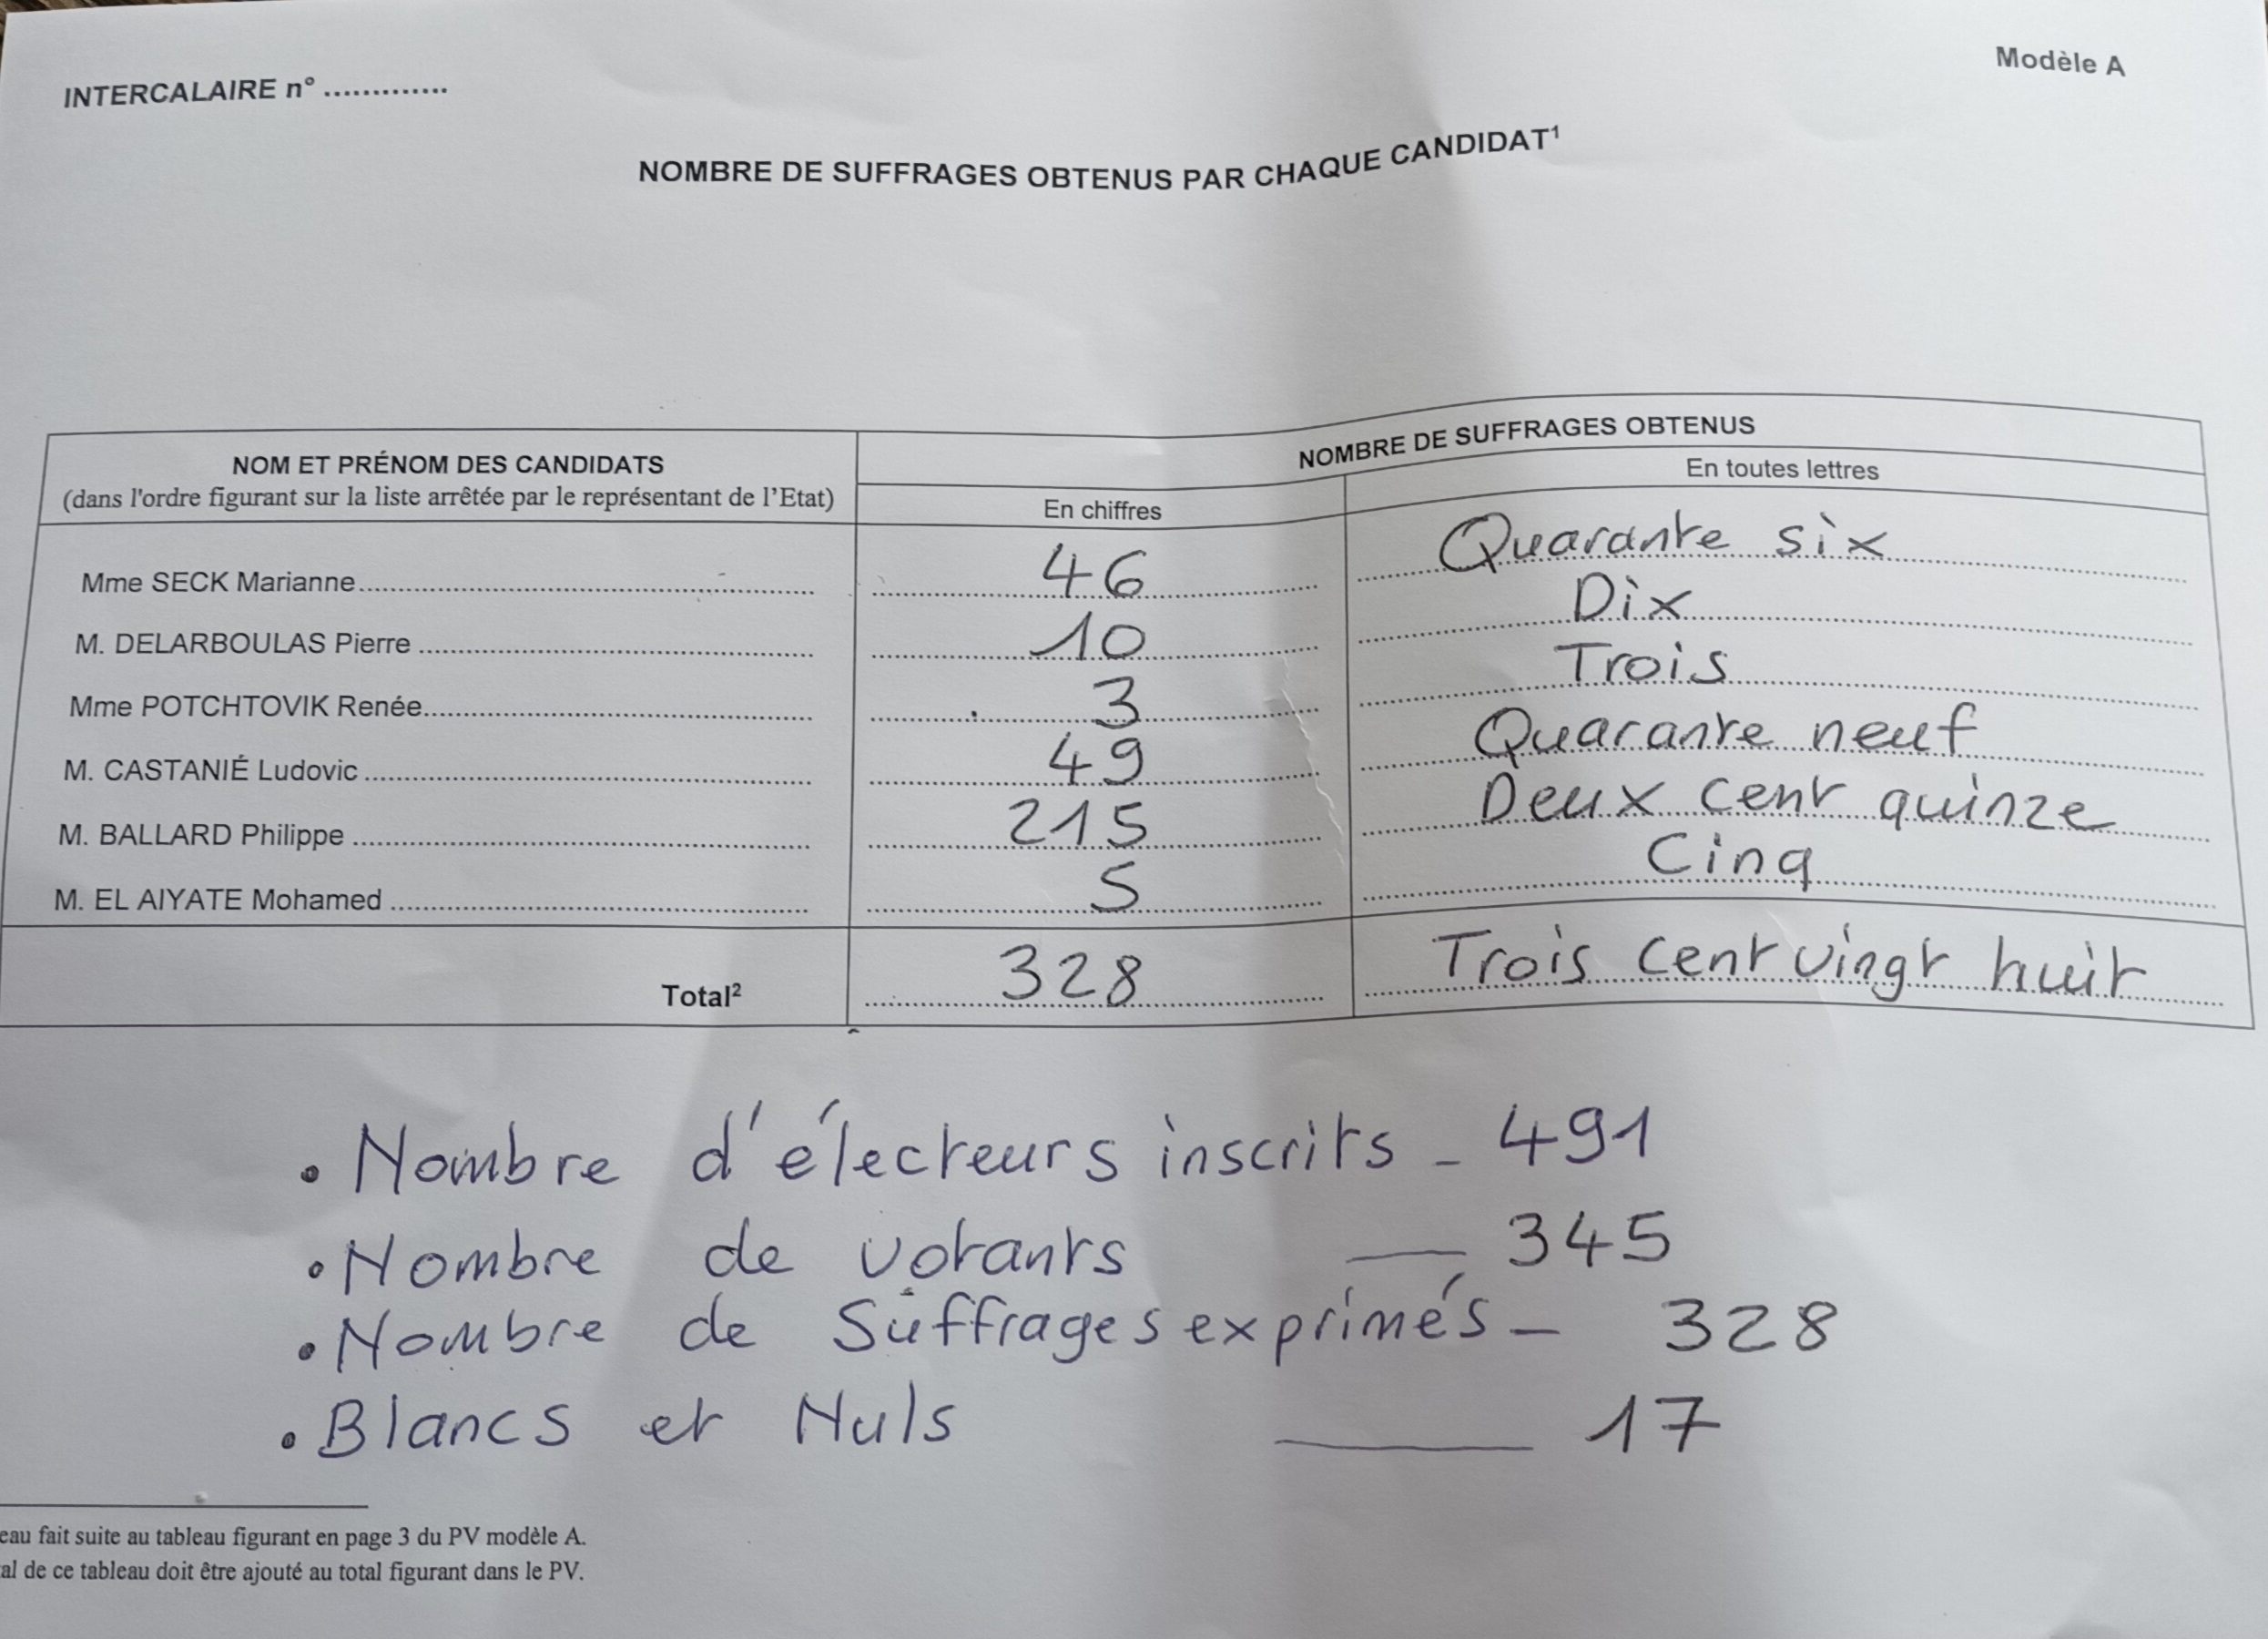 Modèle A
INTERCALAIRE n° .............
NOMBRE DE SUFFRAGES OBTENUS PAR CHAQUE CANDIDAT¹
NOM ET PRÉNOM DES CANDIDATS
(dans l'ordre figurant sur la liste arrêtée par le représentant de l'Etat)
NOMBRE DE SUFFRAGES OBTENUS
En chiffres
En toutes lettres
Mme SECK Marianne 46 Quarante six
M. DELARBOULAS Pierre 10 Dix
Mme POTCHTOVIK Renée 3 Trois
M. CASTANIÉ Ludovic 49 Quarante neuf
M. BALLARD Philippe 215 Deux cent quinze
M. EL AIYATE Mohamed 5 Cinq
Total² 328 Trois cent vingt huit
. Nombre d'électeurs inscrits - 491
. Nombre de votants — 345
. Nombre de Suffrages exprimés - 328
. Blancs et Nuls — 17
eau fait suite au tableau figurant en page 3 du PV modèle A.
al de ce tableau doit être ajouté au total figurant dans le PV.